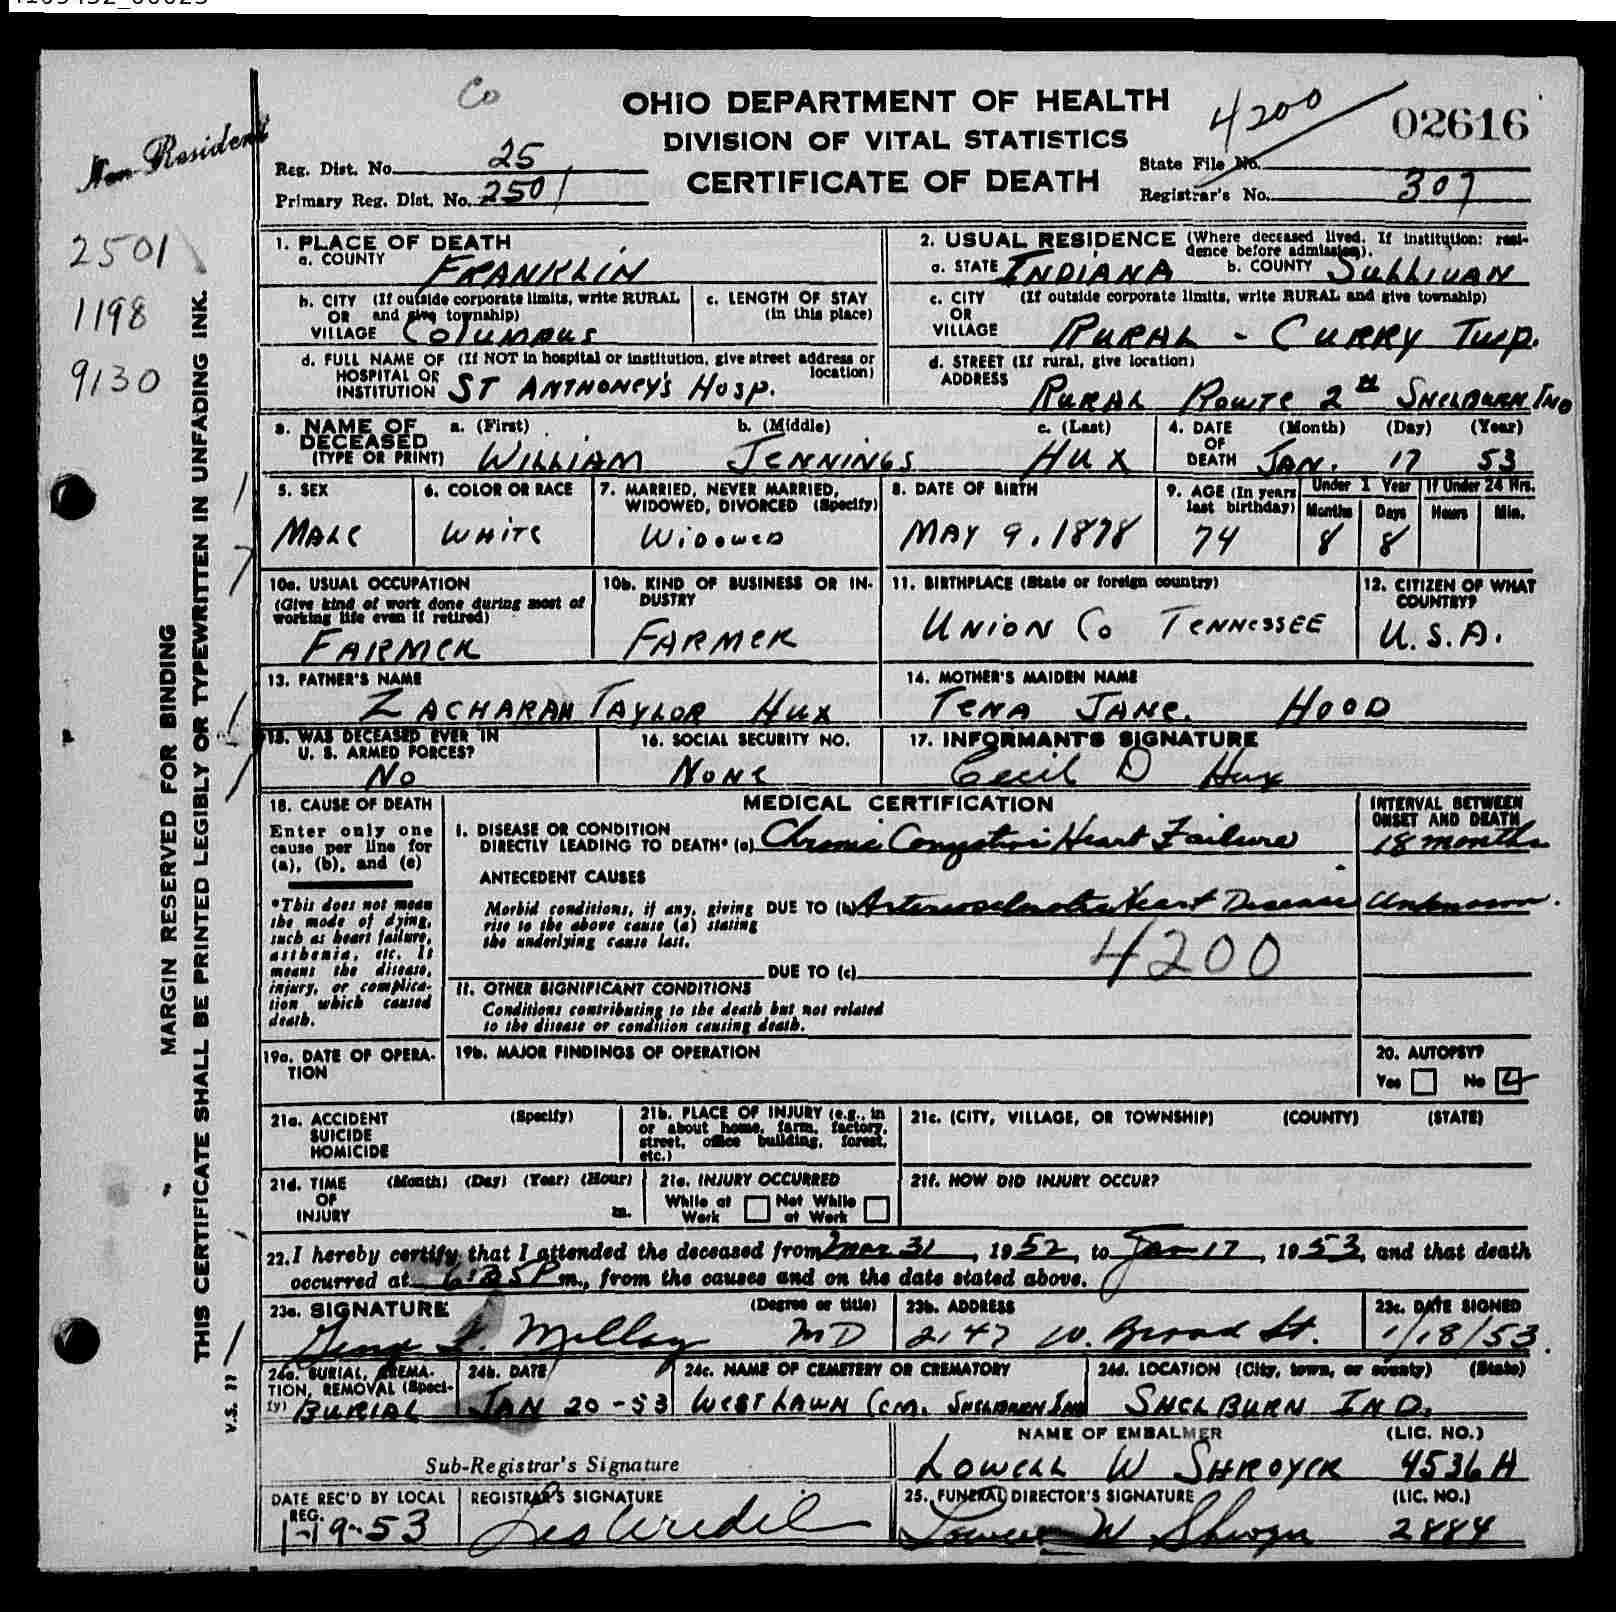 Co
OHIO DEPARTMENT OF HEALTH
DIVISION OF VITAL STATISTICS
CERTIFICATE OF DEATH
Non-Resident
Reg. Dist. No. 25
Primary Reg. Dist. No. 2501
4200
02616
State File No.
Registrar's No. 307
2501
1198
9130
MARGIN RESERVED FOR BINDING
THIS CERTIFICATE SHALL BE PRINTED LEGIBLY OR TYPEWRITTEN IN UNFADING INK.
V.S. 11
1. PLACE OF DEATH
a. COUNTY FRANKLIN
2. USUAL RESIDENCE (Where deceased lived. If institution: residence before admission).
a. STATE INDIANA b. COUNTY SULLIVAN
b. CITY (If outside corporate limits, write RURAL
OR and give township)
VILLAGE COLUMBUS
c. LENGTH OF STAY
(in this place)
c. CITY (If outside corporate limits, write RURAL and give township)
OR
VILLAGE RURAL - CURRY TWP.
d. FULL NAME OF (If NOT in hospital or institution, give street address or location)
HOSPITAL OR
INSTITUTION ST ANTHONEY'S HOSP.
d. STREET (If rural, give location)
ADDRESS RURAL ROUTE 2 SHELBURN IND
3. NAME OF DECEASED
(TYPE OR PRINT)
a. (First) WILLIAM
b. (Middle) JENNINGS
c. (Last) HUX
4. DATE OF DEATH (Month) (Day) (Year)
JAN. 17 53
5. SEX
MALE
6. COLOR OR RACE
WHITE
7. MARRIED, NEVER MARRIED,
WIDOWED, DIVORCED (Specify)
WIDOWED
8. DATE OF BIRTH
MAY 9, 1878
9. AGE (In years
last birthday)
74
Under 1 Year
Months Days
8 8
If Under 24 Hrs.
Hours Min.
10a. USUAL OCCUPATION
(Give kind of work done during most of
working life even if retired)
FARMER
10b. KIND OF BUSINESS OR INDUSTRY
FARMER
11. BIRTHPLACE (State or foreign country)
UNION CO TENNESSEE
12. CITIZEN OF WHAT
COUNTRY?
U.S.A.
13. FATHER'S NAME
ZACHARAH TAYLOR HUX
14. MOTHER'S MAIDEN NAME
TENA JANE HOOD
15. WAS DECEASED EVER IN
U. S. ARMED FORCES?
NO
16. SOCIAL SECURITY NO.
NONE
17. INFORMANT'S SIGNATURE
Cecil D Hux
18. CAUSE OF DEATH
Enter only one
cause per line for
(a), (b), and (c)
*This does not mean
the mode of dying,
such as heart failure,
asthenia, etc. It
means the disease,
injury, or complica-
tion which caused
death.
MEDICAL CERTIFICATION
I. DISEASE OR CONDITION
DIRECTLY LEADING TO DEATH* (a) Chronic Congestive Heart Failure
INTERVAL BETWEEN
ONSET AND DEATH
18 months
ANTECEDENT CAUSES
Morbid conditions, if any, giving
rise to the above cause (a) stating
the underlying cause last.
DUE TO (b) Arteriosclerotic Heart Disease Unknown.
4200
DUE TO (c)
II. OTHER SIGNIFICANT CONDITIONS
Conditions contributing to the death but not related
to the disease or condition causing death.
19a. DATE OF OPERA-
TION
19b. MAJOR FINDINGS OF OPERATION
20. AUTOPSY?
Yes No
21a. ACCIDENT (Specify)
SUICIDE
HOMICIDE
21b. PLACE OF INJURY (e.g., in
or about home, farm, factory,
street, office building, forest,
etc.)
21c. (CITY, VILLAGE, OR TOWNSHIP) (COUNTY) (STATE)
21d. TIME (Month) (Day) (Year) (Hour)
OF
INJURY m.
21e. INJURY OCCURRED
While at Work Not While at Work
21f. HOW DID INJURY OCCUR?
22. I hereby certify that I attended the deceased from Mar 31, 1952, to Jan 17, 1953, and that death
occurred at 6:25 P m., from the causes and on the date stated above.
23a. SIGNATURE (Degree or title)
George MD
23b. ADDRESS
2147 W. Broad St.
23c. DATE SIGNED
1/18/53.
24a. BURIAL, CREMA-
TION, REMOVAL (Speci-
fy) BURIAL
24b. DATE
JAN 20-53
24c. NAME OF CEMETERY OR CREMATORY
WEST LAWN CEM. SHELBURN IND
24d. LOCATION (City, town, or county) (State)
SHELBURN IND.
Sub-Registrar's Signature
NAME OF EMBALMER (LIC. NO.)
LOWELL W SHROYER 4536A
DATE REC'D BY LOCAL
REG.
1-19-53
REGISTRAR'S SIGNATURE
25. FUNERAL DIRECTOR'S SIGNATURE (LIC. NO.)
Lowell W Shroyer 2884